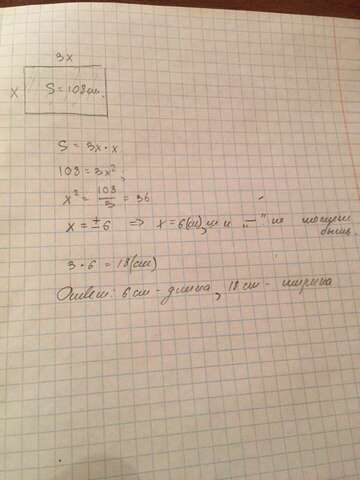 3x
x S = 108см.
S = 3x · x
108 = 3x²;
x² = 108/3 = 36
x = ±6 => x = 6(см), "—" не может
быть.
3 · 6 = 18(см)
Ответ: 6 см - длина, 18 см - ширина